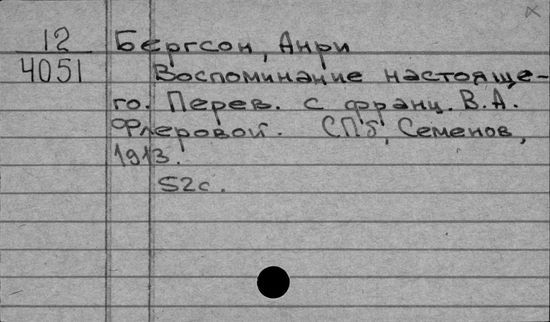 12 Бергсон, Анри
4051 Воспоминание настояще-
го. Перев. с франц. В.А.
Флеровой. СПб, Семенов,
1913.
52с.